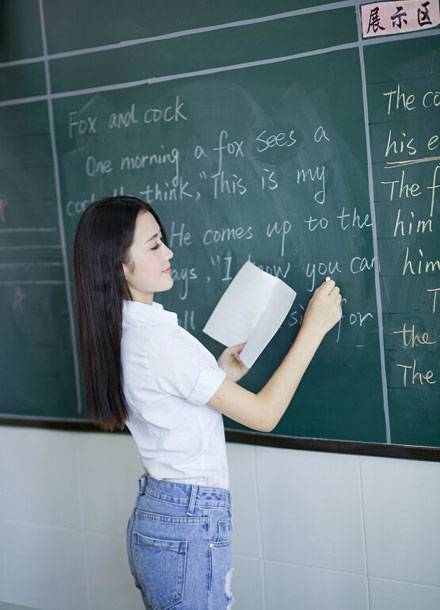 展示区
Fox and cock
One morning a fox sees a
think, "This is my
He comes up to the
"I know you can
for
The co
his e
The f
him
him
The
the
The